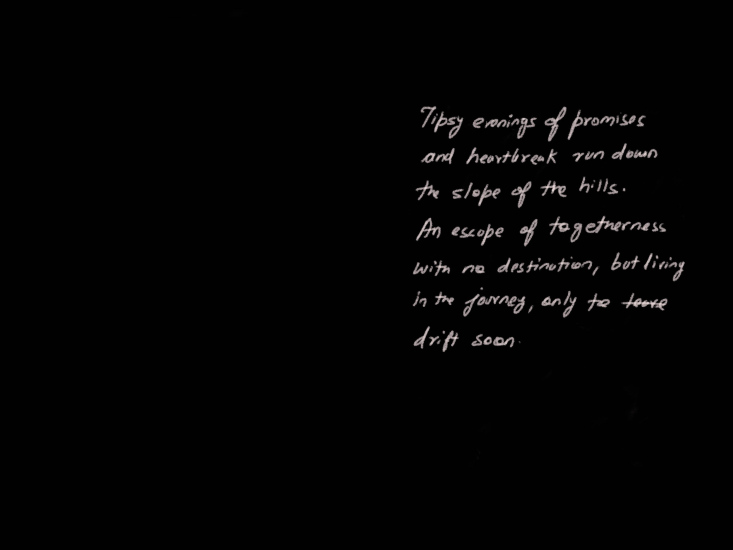 Tipsy evenings of promises
and heartbreak run down
the slope of the hills.
An escape of togetherness
with no destination, but living
in the journey, only to leave
drift soon.